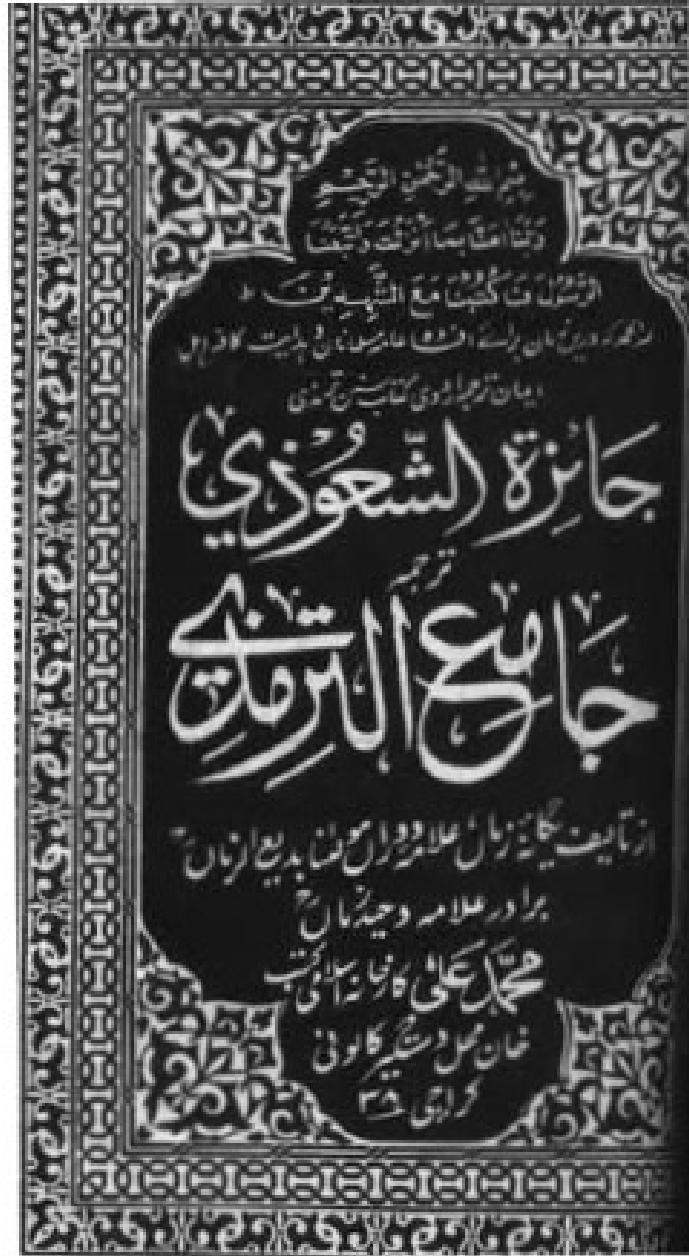 بِسْمِ اللهِ الرَّحْمٰنِ الرَّحِيْمِ
رَبَّنَا اٰمَنَّا بِمَا اَنْزَلْتَ وَاتَّبَعْنَا
الرَّسُوْلَ فَاكْتُبْنَا مَعَ الشّٰهِدِيْنَ ط
ایمان ترجمہ اردوی کتاب سنن ترمذی
جَائِزَةُ الشَّعُوْذِي
ترجمہ
جَامِعُ التِّرْمِذِي
از تالیف یگانۂ زماں علامۂ دوراں مولانا بدیع الزماںؒ
برادر علامہ وحید زماںؒ
محمد علی کارخانہ اسلامی کتب
خان محل دستگیر کالونی
کراچی ۳۸